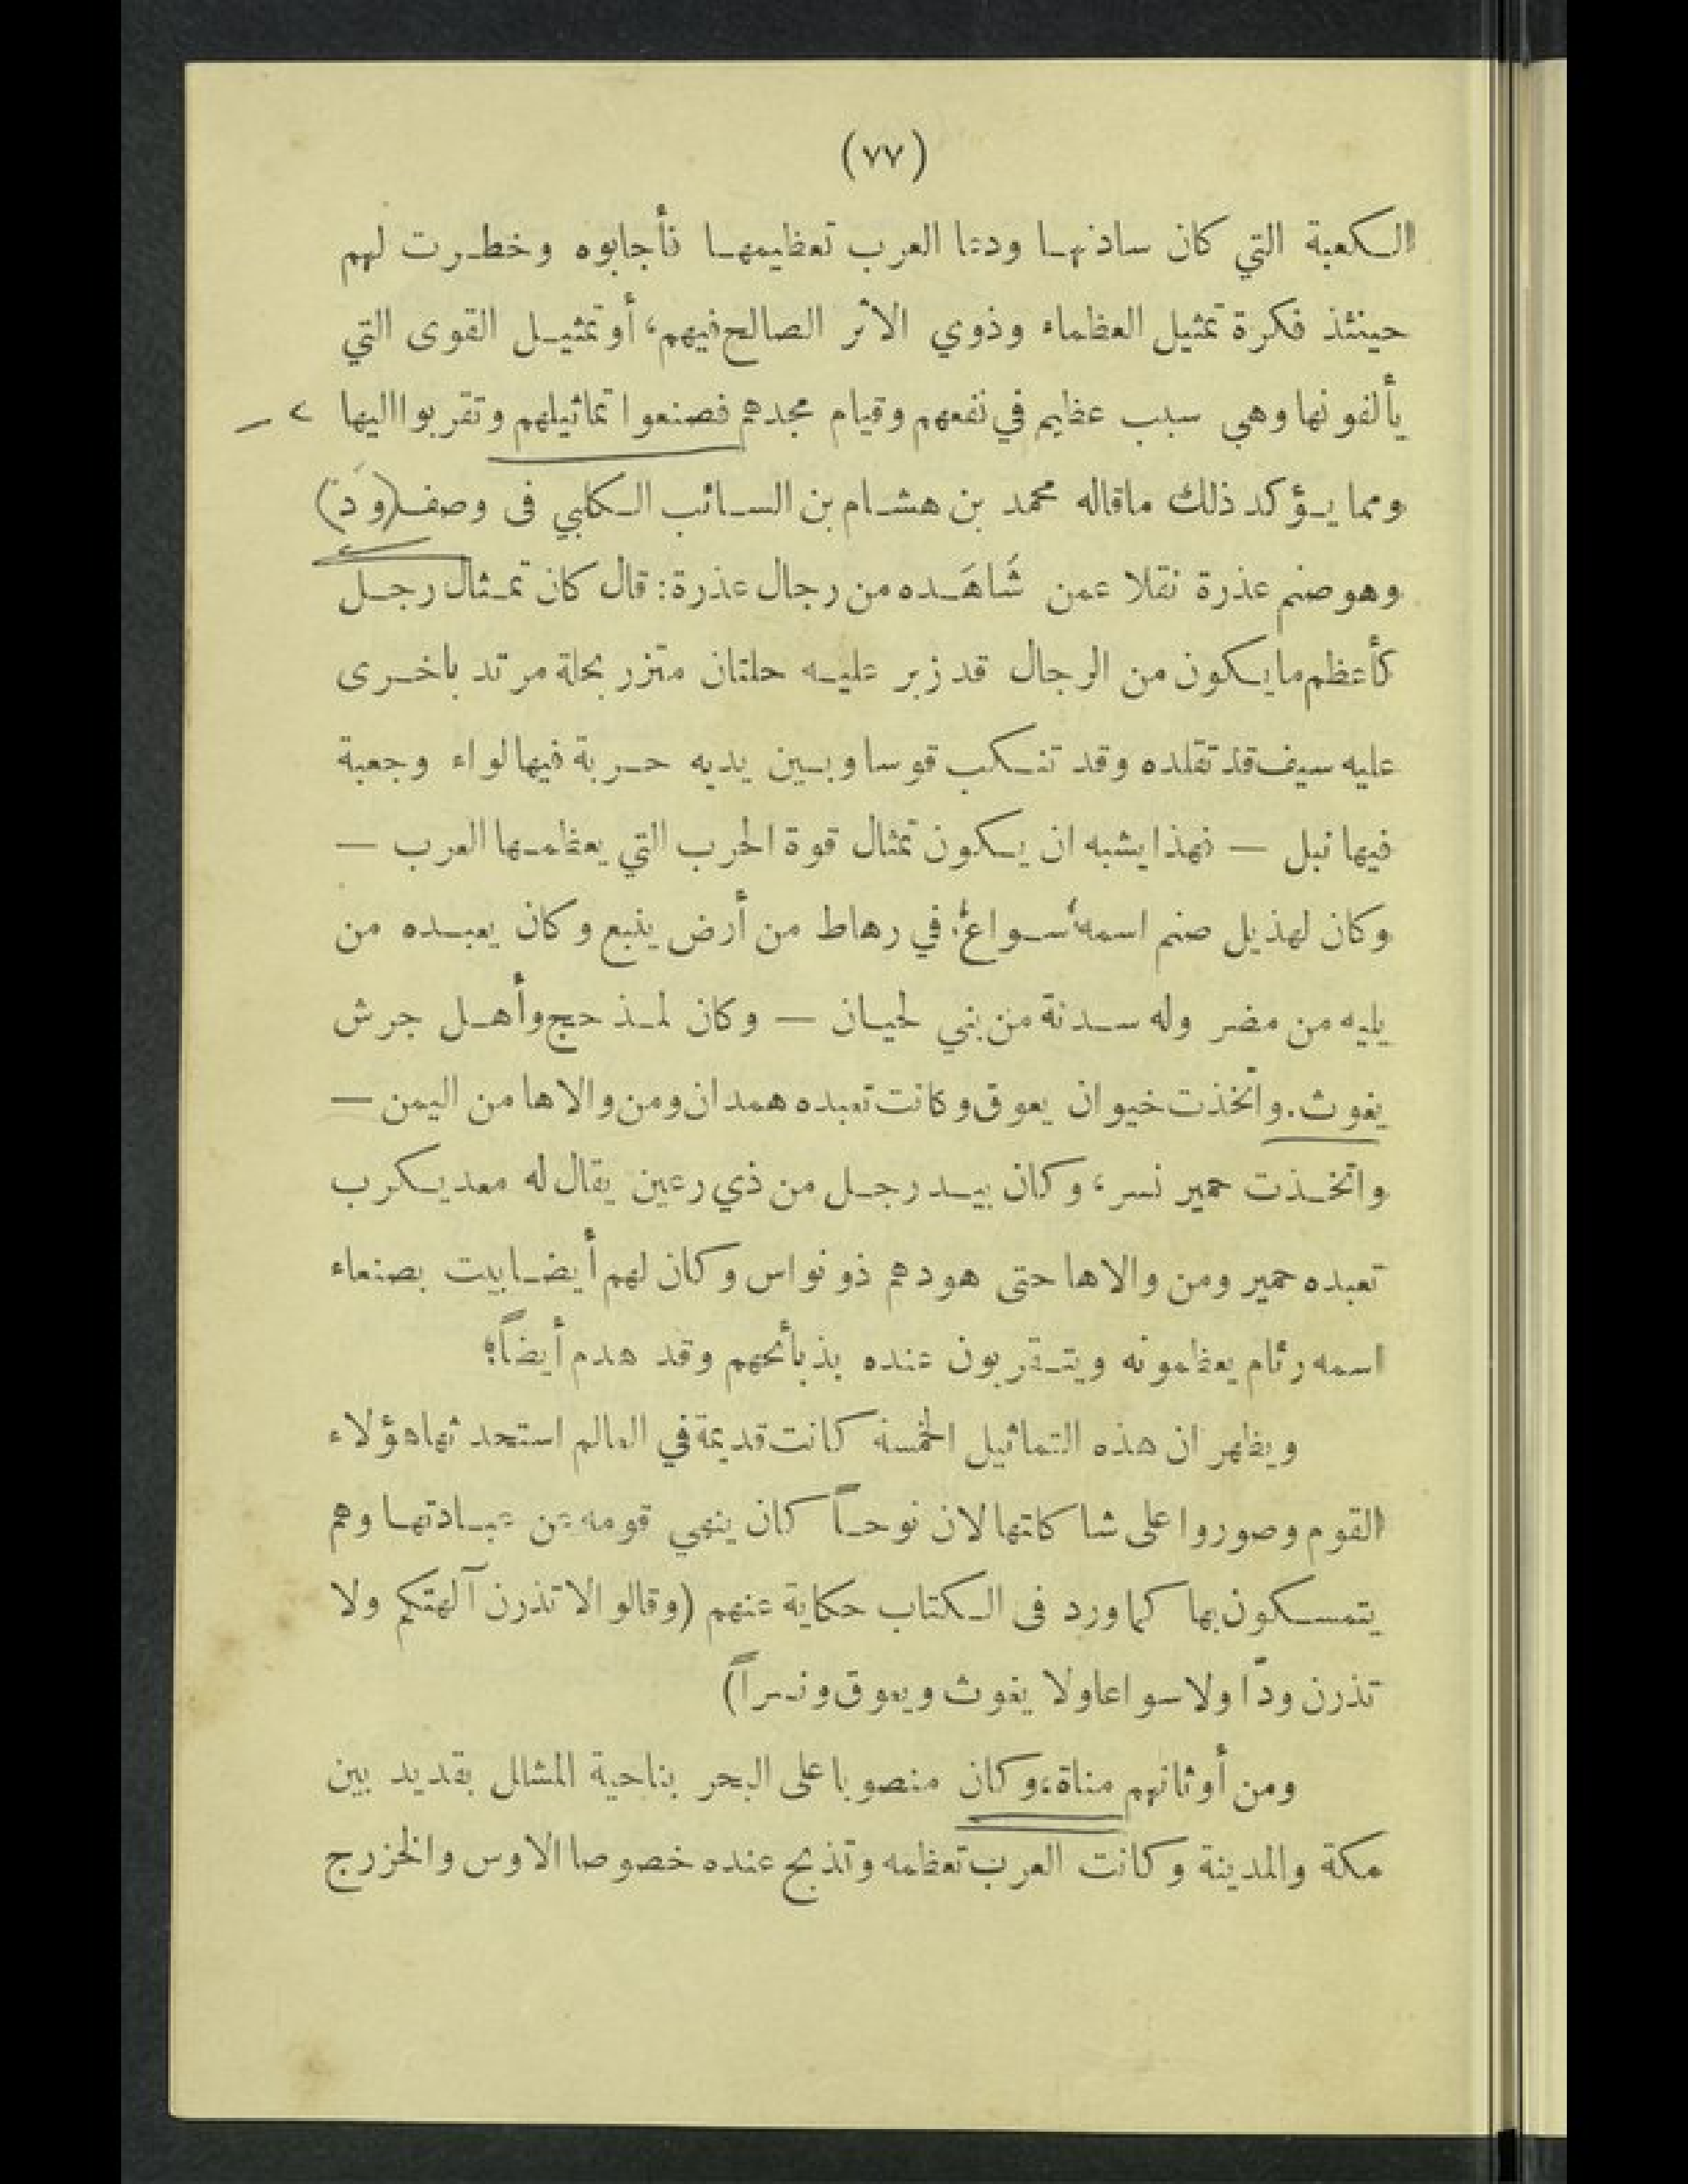 (٧٧)
الكعبة التي كان سادنها ودعا العرب تعظيمها فأجابوه وخطرت لهم
حينئذ فكرة تمثيل العظماء وذوي الأثر الصالح فيهم، أو تمثيل القوى التي
يألفونها وهي سبب عظيم في نفعهم وقيام مجدهم فصنعوا تماثيلهم وتقربوا اليها
ومما يؤكد ذلك ماقاله محمد بن هشام بن السائب الكلبي فى وصف (وَدّ)
وهو صنم عذرة نقلا عمن شَاهَده من رجال عذرة: قال كان تمثال رجل
كأعظم ما يكون من الرجال قد زبر عليه حلتان متزر بحلة مرتد باخرى
عليه سيف قد تقلده وقد تنكب قوسا وبين يديه حربة فيها لواء وجعبة
فيها نبل — فهذا يشبه ان يكون تمثال قوة الحرب التي يعظمها العرب —
وكان لهذيل صنم اسمه سُواعٌ في رهاط من أرض ينبع وكان يعبده من
يليه من مضر وله سدنة من بني لحيان — وكان لمذحج وأهل جرش
يغوث. واتخذت خيوان يعوق وكانت تعبده همدان ومن والاها من اليمن —
واتخذت حمير نسر، وكان بيد رجل من ذي رعين يقال له معديكرب
تعبده حمير ومن والاها حتى هودهم ذو نواس وكان لهم أيضا بيت بصنعاء
اسمه رئام يعظمونه ويتقربون عنده بذبأئحهم وقد هدم أيضاً؛
ويظهر ان هذه التماثيل الخمسة كانت قديمة في العالم استحدثها هؤلاء
القوم وصوروا على شاكلتها لان نوحاً كان ينهي قومه عن عبادتها وهم
يتمسكون بها كما ورد فى الكتاب حكاية عنهم (وقالوا لا تذرن آلهتكم ولا
تذرن ودّا ولا سواعا ولا يغوث ويعوق ونسراً)
ومن أوثانهم مناة، وكان منصوبا على البحر بناحية المشلل بقديد بين
مكة والمدينة وكانت العرب تعظمه وتذبح عنده خصوصا الاوس والخزرج